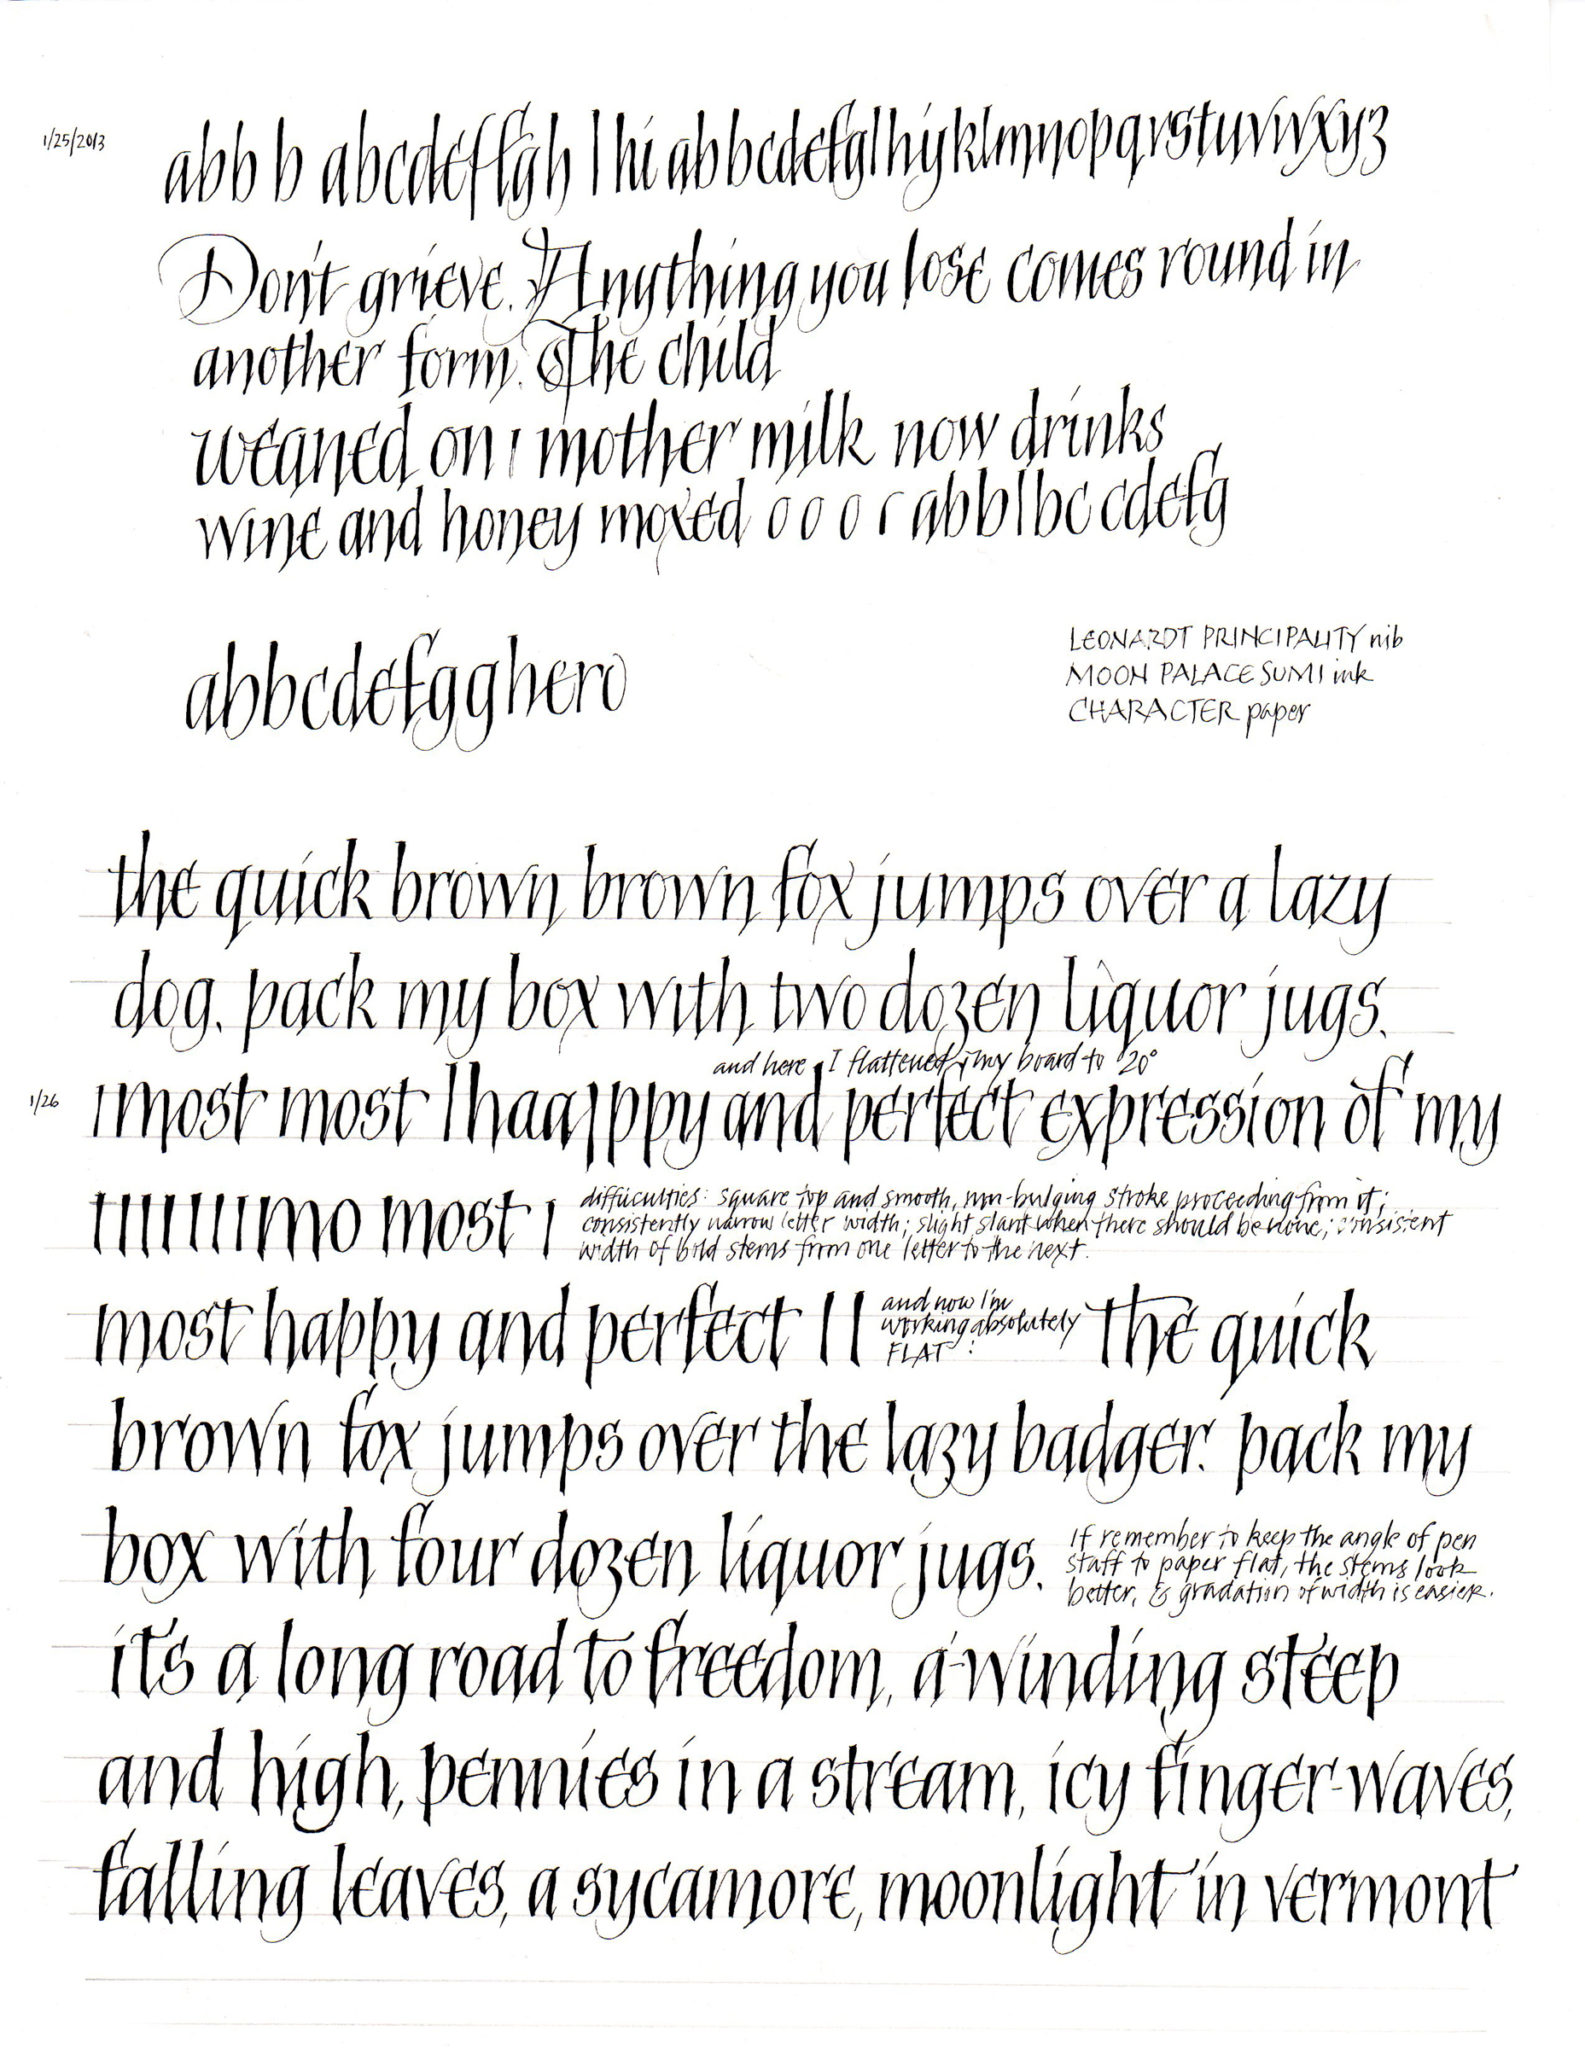 1/25/2013
abb b abcdeffgh l hi abbcdefglhijklmnopqrstuvwxyz
Don't grieve. Anything you lose comes round in
another form. The child
weaned on mother milk now drinks
wine and honey mixed o o o c abblbccdefg
abbcdefgghero
LEONARDT PRINCIPALITY nib
MOON PALACE SUMI ink
CHARACTER paper
the quick brown brown fox jumps over a lazy
dog. pack my box with two dozen liquor jugs.
and here I flattened my board to 20°
1/26
most most happy and perfect expression of my
mo most
difficulties: square top and smooth, non-bulging stroke proceeding from it;
consistently narrow letter width; slight slant when there should be none; consistent
width of bold stems from one letter to the next.
most happy and perfect l l
and now I'm
working absolutely
FLAT:
the quick
brown fox jumps over the lazy badger. pack my
box with four dozen liquor jugs.
If remember to keep the angle of pen
staff to paper flat, the stems look
better, & gradation of width is easier.
it's a long road to freedom, a-winding steep
and high, pennies in a stream, icy finger-waves,
falling leaves, a sycamore, moonlight in vermont